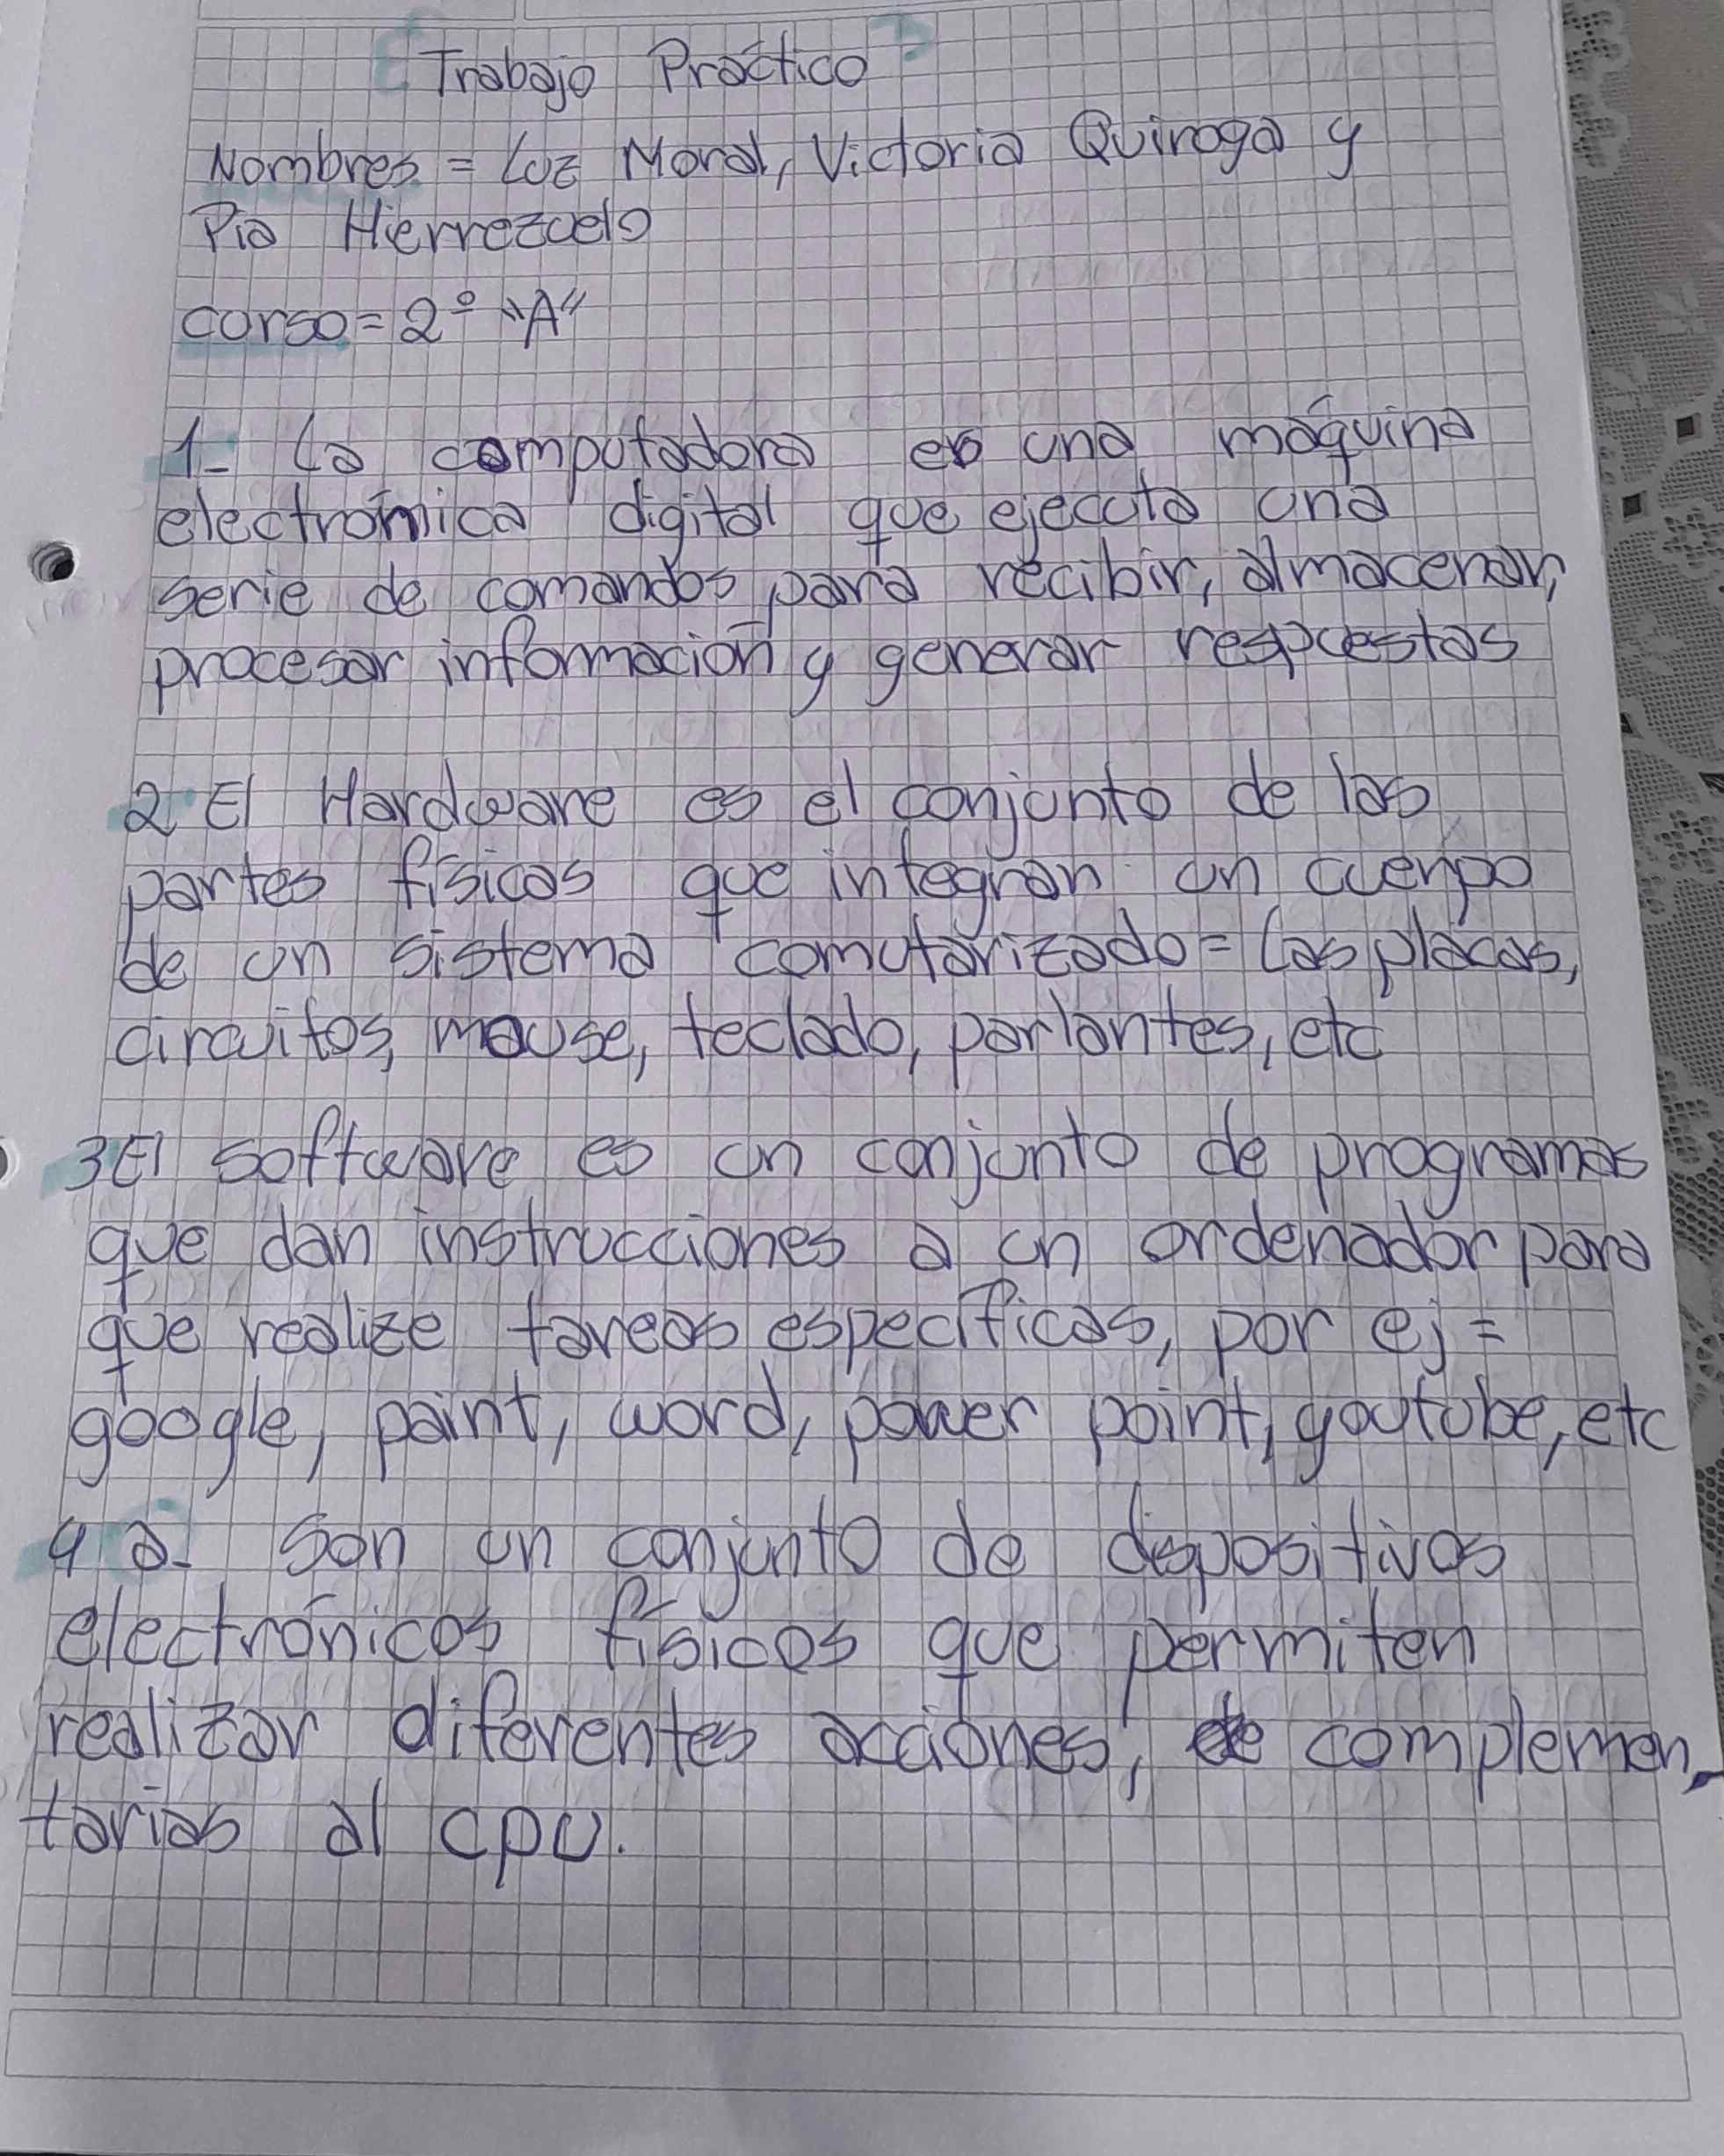 Trabajo Práctico
Nombres = Luz Moral, Victoria Quiroga y
Pia Hierrezuelo
curso = 2º "A"
1- La computadora es una máquina
electrónica digital que ejecuta una
serie de comandos para recibir, almacenar,
procesar información y generar respuestas
2 El Hardware es el conjunto de las
partes físicas que integran un cuerpo
de un sistema comutarizado = Las placas,
circuitos, mouse, teclado, parlantes, etc
3 El software es un conjunto de programas
que dan instrucciones a un ordenador para
que realize tareas específicas, por ej =
google, paint, word, power point, youtube, etc
4 a- Son un conjunto de dispositivos
electrónicos físicos que permiten
realizar diferentes acciones, de complemen-
tarias al cpu.